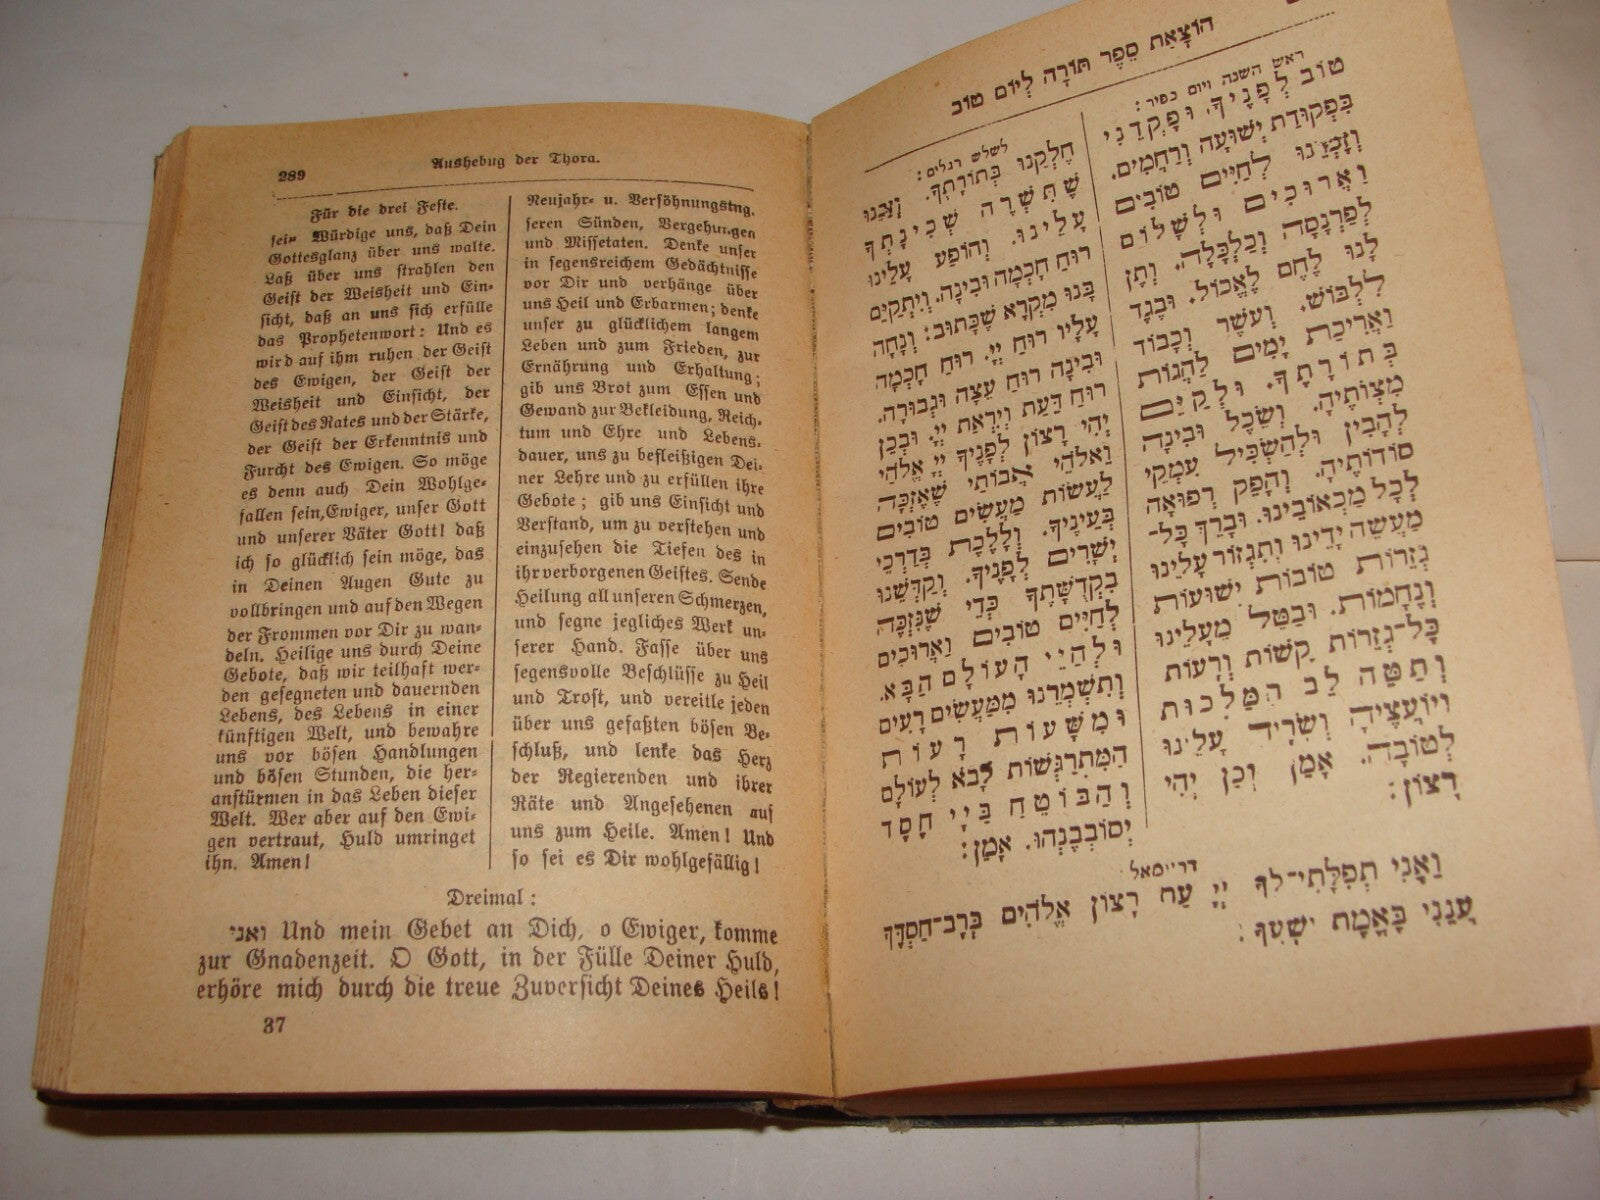 289
Aushebug der Thora.
Für die drei Feste.
sein. Würdige uns, daß Dein
Gottesglanz über uns walte.
Laß über uns strahlen den
Geist der Weisheit und Ein-
sicht, daß an uns sich erfülle
das Prophetenwort: Und es
wird auf ihm ruhen der Geist
des Ewigen, der Geist der
Weisheit und Einsicht, der
Geist des Rates und der Stärke,
der Geist der Erkenntnis und
Furcht des Ewigen. So möge
es denn auch Dein Wohlge-
fallen sein, Ewiger, unser Gott
und unserer Väter Gott! daß
ich so glücklich sein möge, das
in Deinen Augen Gute zu
vollbringen und auf den Wegen
der Frommen vor Dir zu wan-
deln. Heilige uns durch Deine
Gebote, daß wir teilhaft wer-
den gesegneten und dauernden
Lebens, des Lebens in einer
künftigen Welt, und bewahre
uns vor bösen Handlungen
und bösen Stunden, die her-
anstürmen in das Leben dieser
Welt. Wer aber auf den Ewi-
gen vertraut, Huld umringet
ihn. Amen!
Neujahr- u. Versöhnungstng.
seren Sünden, Vergehungen
und Missetaten. Denke unser
in segensreichem Gedächtnisse
vor Dir und verhänge über
uns Heil und Erbarmen; denke
unser zu glücklichem langem
Leben und zum Frieden, zur
Ernährung und Erhaltung;
gib uns Brot zum Essen und
Gewand zur Bekleidung, Reich-
tum und Ehre und Lebens-
dauer, uns zu befleißigen Dei-
ner Lehre und zu erfüllen ihre
Gebote; gib uns Einsicht und
Verstand, um zu verstehen und
einzusehen die Tiefen des in
ihr verborgenen Geistes. Sende
Heilung all unseren Schmerzen,
und segne jegliches Werk un-
serer Hand. Fasse über uns
segensvolle Beschlüsse zu Heil
und Trost, und vereitle jeden
über uns gefaßten bösen Be-
schluß, und lenke das Herz
der Regierenden und ihrer
Räte und Angesehenen auf
uns zum Heile. Amen! Und
so sei es Dir wohlgefällig!
Dreimal:
ואני Und mein Gebet an Dich, o Ewiger, komme
zur Gnadenzeit. O Gott, in der Fülle Deiner Huld,
erhöre mich durch die treue Zuversicht Deines Heils!
37
הוֹצָאַת סֵפֶר תּוֹרָה לְיוֹם טוֹב
ראש השנה ויום כפיר:
טוֹב לְפָנֶיךָ. וּפָקְדֵנִי
בִּפְקוּדַת יְשׁוּעָה וְרַחֲמִים.
וְזָכְרֵנוּ לְחַיִּים טוֹבִים
וַאֲרוּכִים וּלְשָׁלוֹם
לְפַרְנָסָה וְכַלְכָּלָה. וְתֶן
לָנוּ לֶחֶם לֶאֱכוֹל. וּבֶגֶד
לִלְבּוֹשׁ. וְעֹשֶׁר וְכָבוֹד
וַאֲרִיכַת יָמִים לַהֲגוֹת
בְּתוֹרָתֶךָ. וּלְקַיֵּם
מִצְוֹתֶיהָ. וְשֵׂכֶל וּבִינָה
לְהָבִין וּלְהַשְׂכִּיל עִמְקֵי
סוֹדוֹתֶיהָ. וְהָפֵק רְפוּאָה
לְכָל מַכְאוֹבֵינוּ. וּבָרֵךְ כָּל־
מַעֲשֵׂה יָדֵינוּ וְתִגְזוֹר עָלֵינוּ
גְזֵרוֹת טוֹבוֹת יְשׁוּעוֹת
וְנֶחָמוֹת. וּבַטֵּל מֵעָלֵינוּ
כָּל־גְּזֵרוֹת קָשׁוֹת וְרָעוֹת
וְתַטֶּה לֵב הַמַּלְכוּת
וְיוֹעֲצֶיהָ וְשָׂרֶיהָ עָלֵינוּ
לְטוֹבָה. אָמֵן וְכֵן יְהִי
רָצוֹן:
לשלש רגלים:
חֶלְקֵנוּ בְּתוֹרָתֶךָ. וְזַכֵּנוּ
שֶׁתִּשְׁרֶה שְׁכִינָתְךָ
עָלֵינוּ. וְהוֹפַע עָלֵינוּ
רוּחַ חָכְמָה וּבִינָה. וְיִתְקַיֵּם
בָּנוּ מִקְרָא שֶׁכָּתוּב: וְנָחָה
עָלָיו רוּחַ יְיָ. רוּחַ חָכְמָה
וּבִינָה רוּחַ עֵצָה וּגְבוּרָה.
רוּחַ דַּעַת וְיִרְאַת יְיָ. וּבְכֵן
יְהִי רָצוֹן לְפָנֶיךָ יְיָ אֱלֹהַי
וֵאלֹהֵי אֲבוֹתַי שֶׁאֶזְכֶּה
לַעֲשׂוֹת מַעֲשִׂים טוֹבִים
בְּעֵינֶיךָ. וְלָלֶכֶת בְּדַרְכֵי
יְשָׁרִים לְפָנֶיךָ. וְקַדְּשֵׁנוּ
בִּקְדֻשָּׁתֶךָ כְּדֵי שֶׁנִּזְכֶּה
לְחַיִּים טוֹבִים וַאֲרוּכִים
וּלְחַיֵּי הָעוֹלָם הַבָּא.
וְתִשְׁמְרֵנוּ מִמַּעֲשִׂים רָעִים
וּמִשָּׁעוֹת רָעוֹת
הַמִּתְרַגְּשׁוֹת לָבֹא לְעוֹלָם
וְהַבּוֹטֵחַ בַּיְיָ חֶסֶד
יְסוֹבְבֶנְהוּ. אָמֵן:
וַאֲנִי תְפִלָּתִי־לְךָ יְיָ עֵת רָצוֹן אֱלֹהִים בְּרָב־חַסְדֶּךָ
עֲנֵנִי בֶּאֱמֶת יִשְׁעֶךָ: